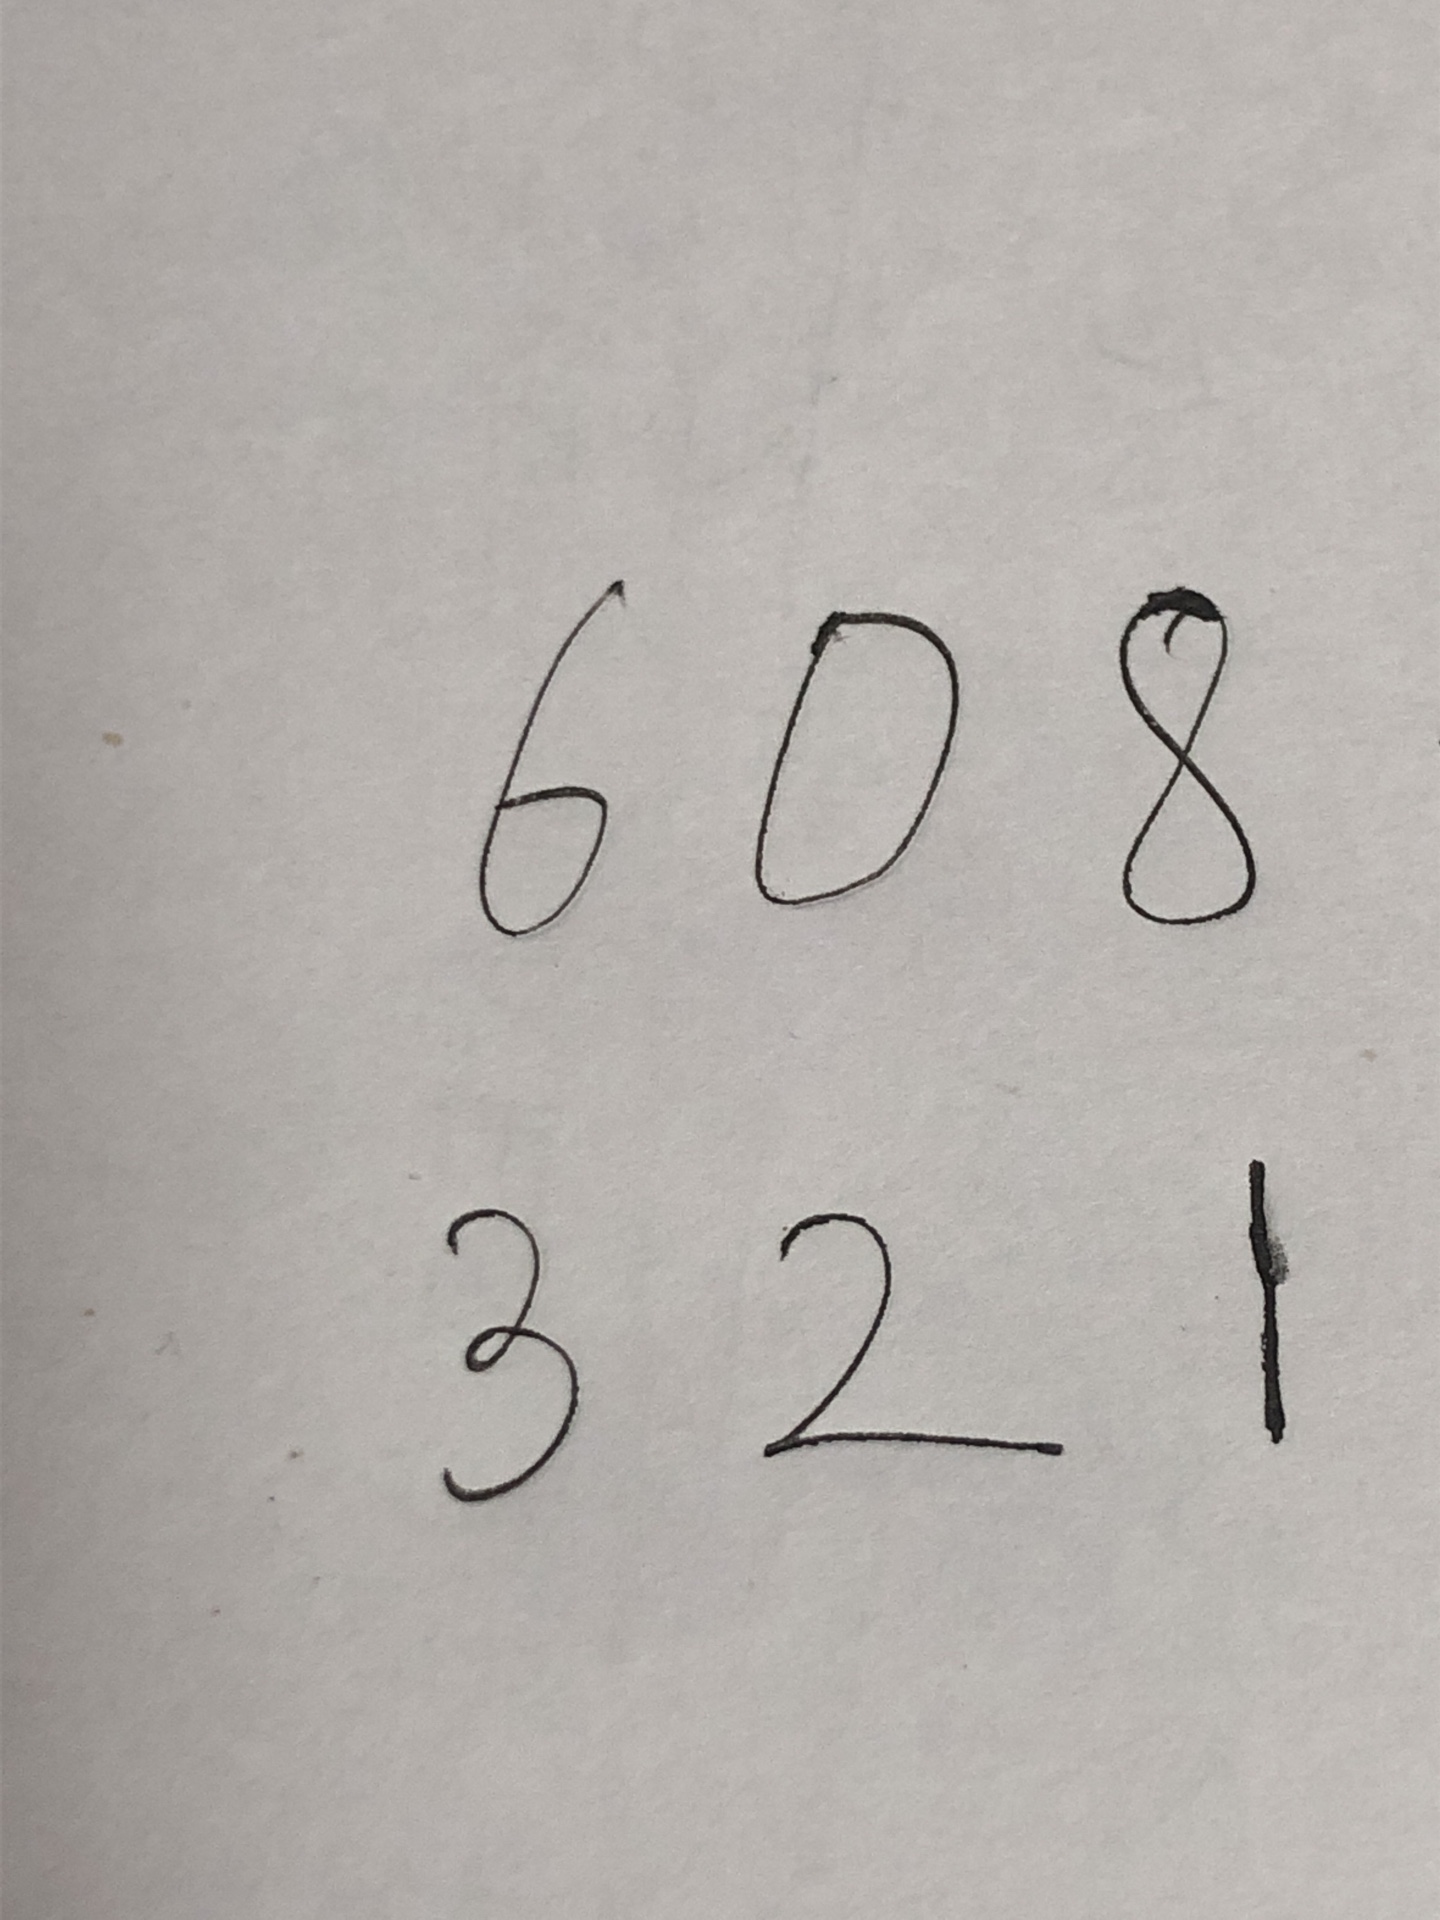 6 0 8
3 2 1